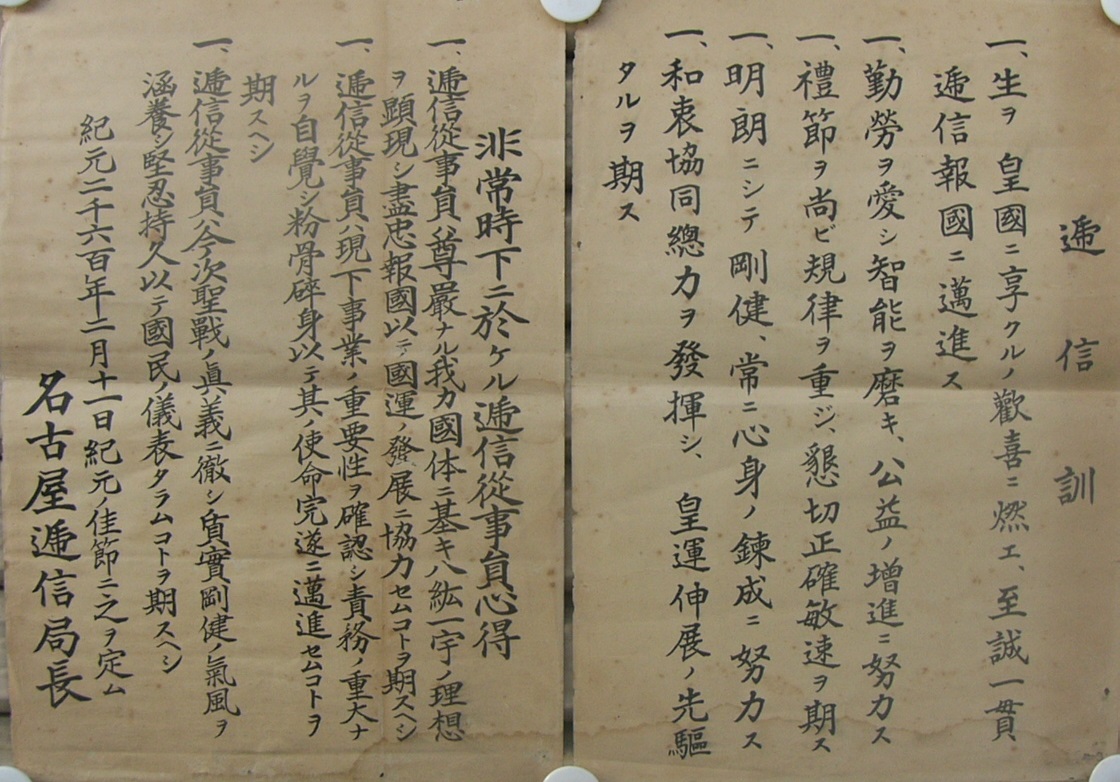 遞信訓
一、生ヲ 皇國ニ享クルノ歡喜ニ燃エ、至誠一貫
遞信報國ニ邁進ス
一、勤勞ヲ愛シ智能ヲ磨キ、公益ノ增進ニ努力ス
一、禮節ヲ尚ビ規律ヲ重ジ、懇切正確敏速ヲ期ス
一、明朗ニシテ剛健、常ニ心身ノ鍊成ニ努力ス
一、和衷協同總力ヲ發揮シ、 皇運伸展ノ先驅
タルヲ期ス
非常時下ニ於ケル遞信從事員心得
一、遞信從事員ハ尊嚴ナル我カ國体ニ基キ八紘一宇ノ理想
ヲ顕現シ盡忠報國以テ國運ノ發展ニ協力セムコトヲ期スヘシ
一、遞信從事員ハ現下事業ノ重要性ヲ確認シ責務ノ重大ナ
ルヲ自覺シ粉骨碎身以テ其ノ使命完遂ニ邁進セムコトヲ
期スヘシ
一、遞信從事員ハ今次聖戰ノ眞義ニ徹シ質實剛健ノ氣風ヲ
涵養シ堅忍持久以テ國民ノ儀表タラムコトヲ期スヘシ
紀元二千六百年二月十一日紀元ノ佳節ニ之ヲ定ム
名古屋遞信局長